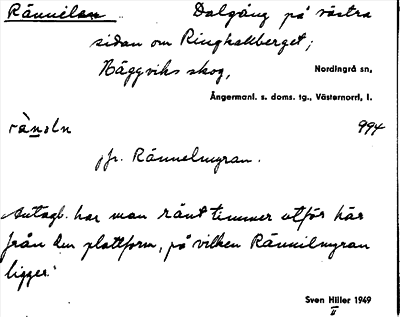 Rännilen Dalgång på västra
sidan om Ringkallberget;
Häggviks skog, Nordingrå sn,
Ångermanl. s. doms. tg., Västernorrl. l.
994
jfr. Rännelmyran.
Antagl. har man ränt timmer utför här
från den plattform, på vilken Rännilmyran
ligger.
Sven Hiller 1949
II